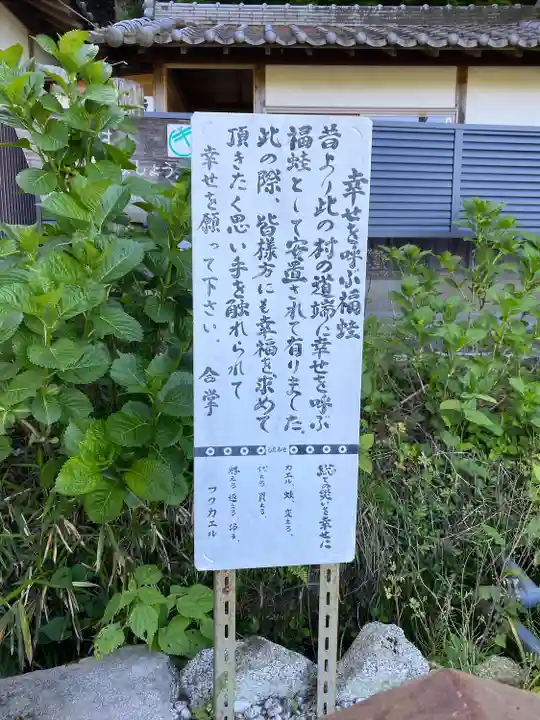 幸せを呼ぶ福蛙
昔より此の村の道端に幸せを呼ぶ
福蛙として安置されて有りました。
此の際、皆様方にも幸福を求めて
頂きたく思い手を触れられて
幸せを願って下さい。 合掌
総ての災いを幸せに
カエル 蛙、変える、
代える 買える、
フクカエル